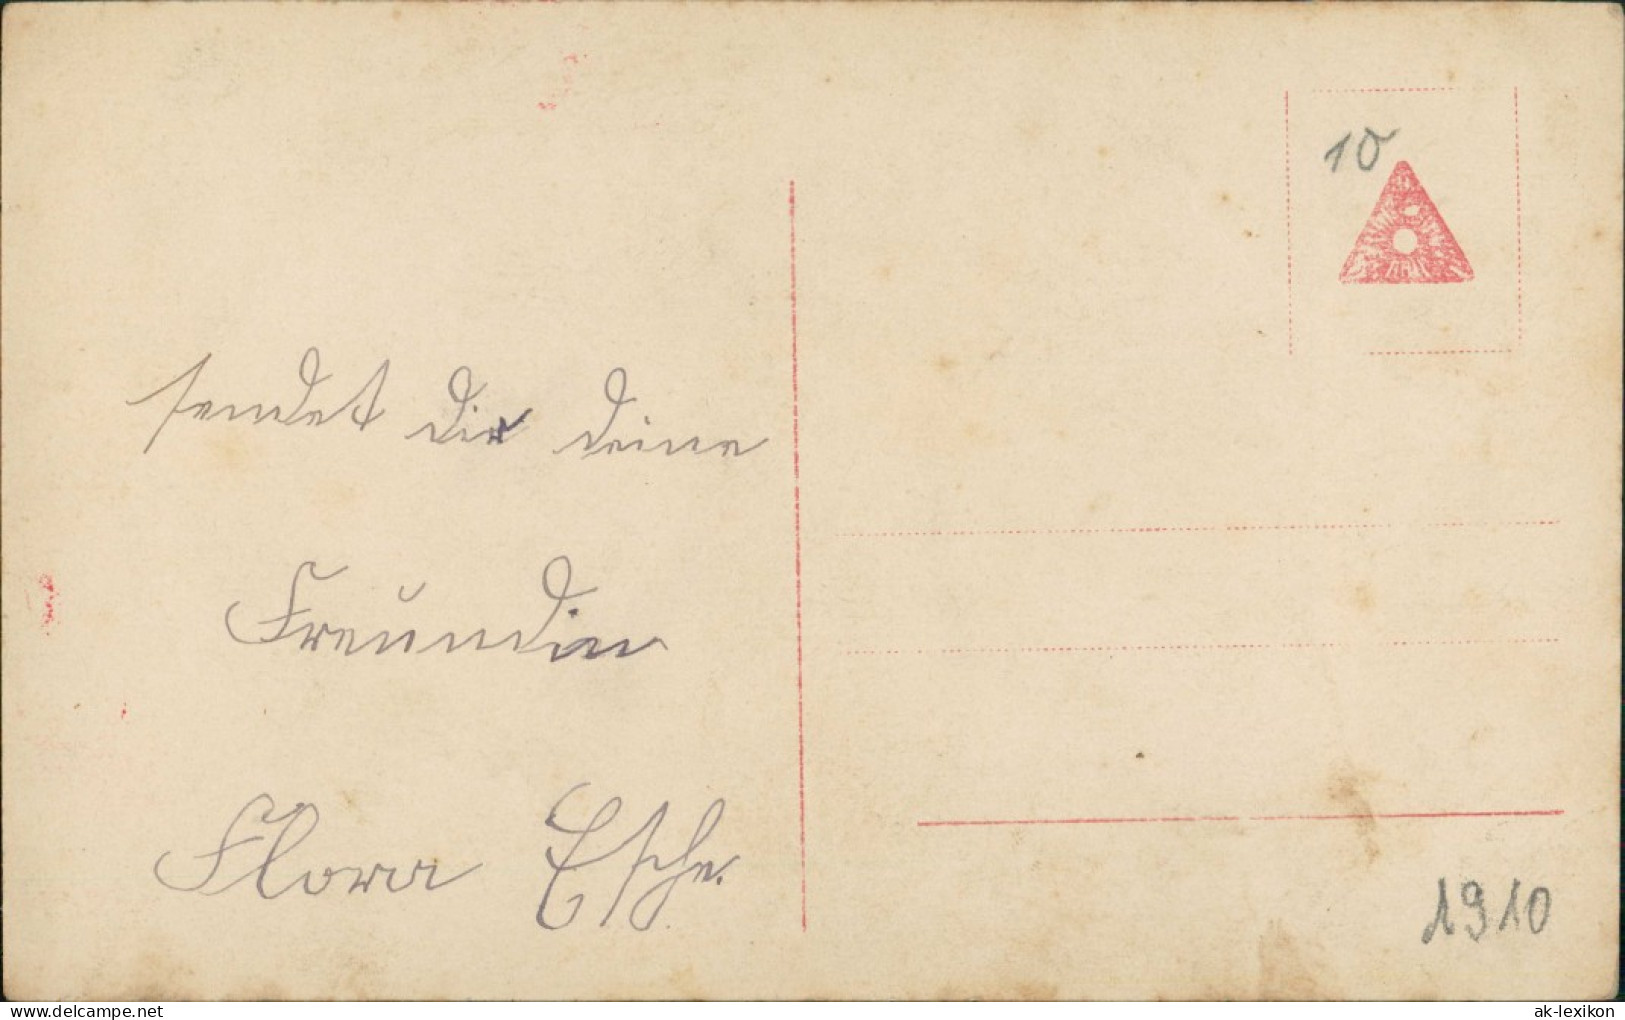 10
sendet dir deine
Freundin
Flora Esche.
1910
ak-lexikon